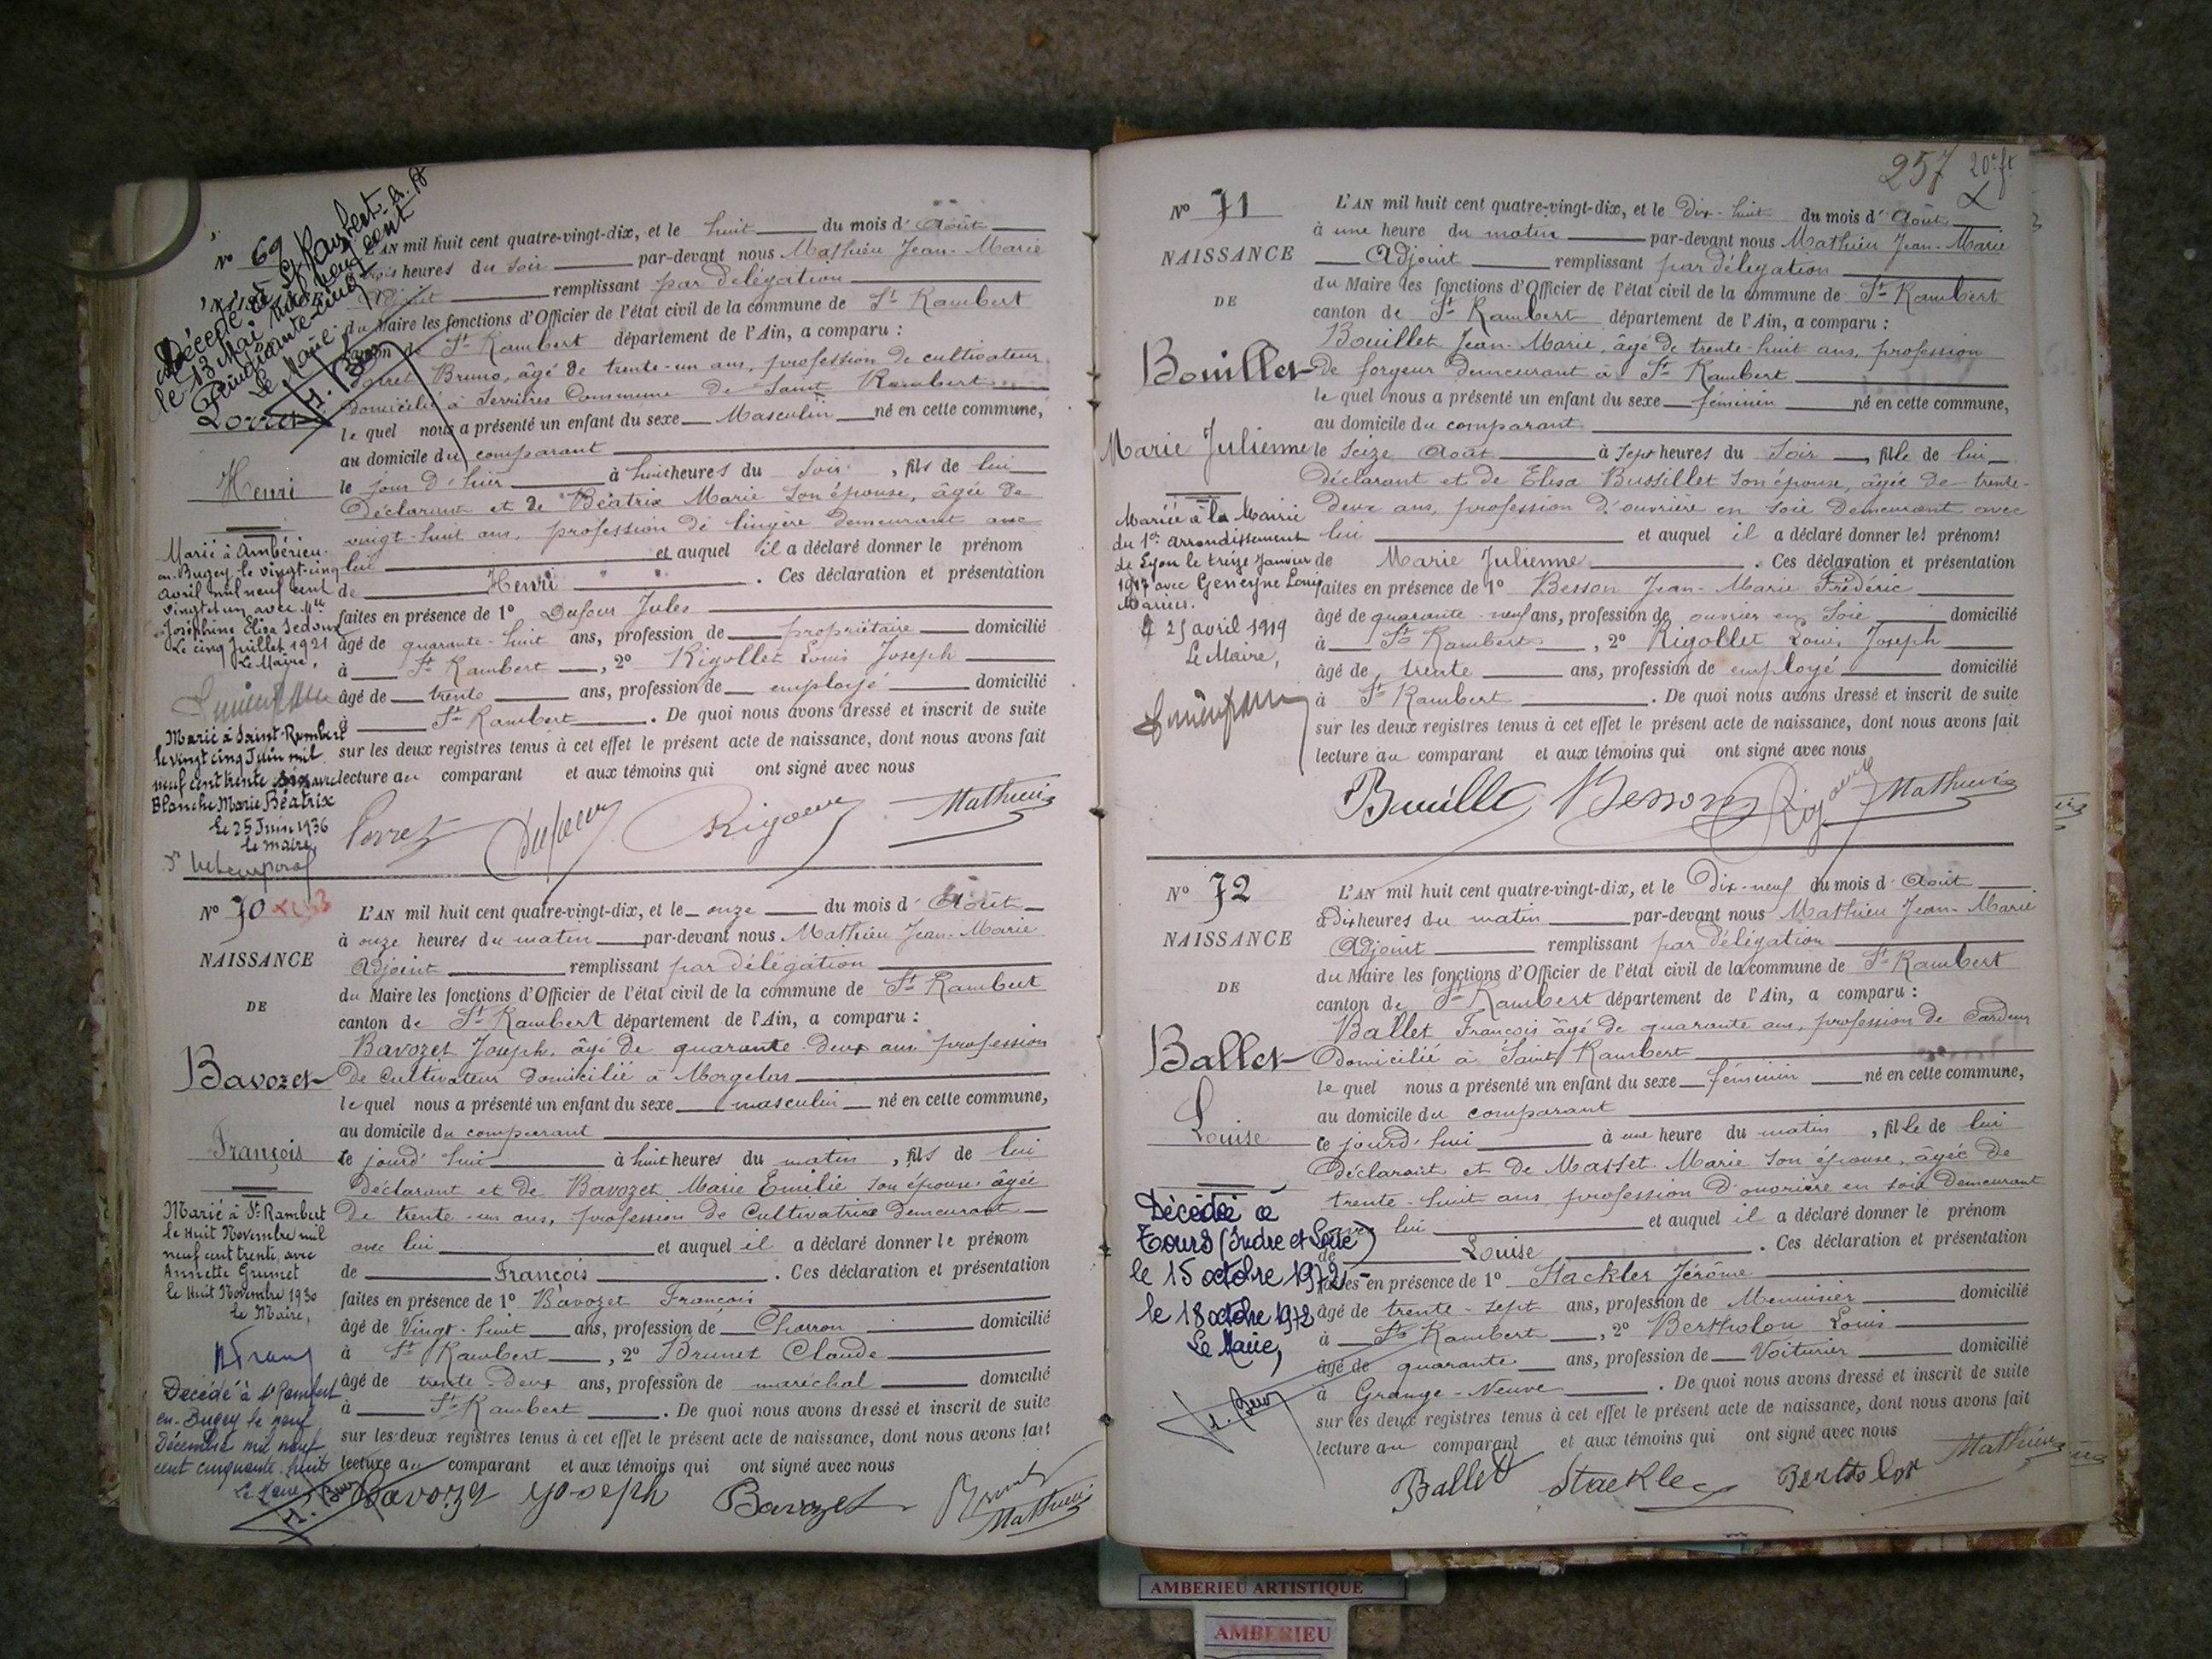 No 69
L'AN mil huit cent quatre-vingt-dix, et le huit du mois d'Août
trois heures du soir par-devant nous Mathieu Jean-Marie
Adjoint remplissant par délégation
du Maire les fonctions d'Officier de l'état civil de la commune de St Rambert
canton de St Rambert département de l'Ain, a comparu :
Lorret Bruno, âgé de trente-un ans, profession de cultivateur
domicilié à Serrières Commune de Saint Rambert
lequel nous a présenté un enfant du sexe Masculin né en cette commune,
au domicile du comparant
le jour d'hier à huit heures du soir, fils de lui
Déclarant et de Béatrix Marie son épouse, âgée de
vingt-huit ans, profession de lingère demeurant avec
lui et auquel il a déclaré donner le prénom
de Henri. Ces déclaration et présentation
faites en présence de 1° Dufour Jules
âgé de quarante-huit ans, profession de propriétaire domicilié
à St Rambert, 2° Rigollet Louis Joseph
âgé de trente ans, profession de employé domicilié
à St Rambert. De quoi nous avons dressé et inscrit de suite
sur les deux registres tenus à cet effet le présent acte de naissance, dont nous avons fait
lecture au comparant et aux témoins qui ont signé avec nous
Décédé à St Rambert
le 13 Mai mil neuf cent
cinquante-cinq
Le Maire
Lorret
Henri
Marié à Ambérieu-
en-Bugey le vingt-cinq
avril mil neuf cent
vingt et un avec Mlle
Joséphine Elisa
Le cinq Juillet 1921
Le Maire,
Marié à Saint-Rambert
le vingt cinq Juin mil
neuf cent trente six avec
Blanche Marie Béatrix
Le 25 Juin 1936
le maire,
Lorret Dufour Mathieu
No 70
NAISSANCE
DE
Bavozet
François
L'AN mil huit cent quatre-vingt-dix, et le onze du mois d'Août
à onze heures du matin par-devant nous Mathieu Jean-Marie
Adjoint remplissant par délégation
du Maire les fonctions d'Officier de l'état civil de la commune de St Rambert
canton de St Rambert département de l'Ain, a comparu :
Bavozet Joseph, âgé de quarante-deux ans profession
de Cultivateur domicilié à Morgelas
lequel nous a présenté un enfant du sexe masculin né en cette commune,
au domicile du comparant
ce jourd'hui à huit heures du matin, fils de lui
déclarant et de Bavozet Marie Emilie son épouse âgée
De trente-un ans, profession de Cultivatrice demeurant
avec lui et auquel il a déclaré donner le prénom
de François. Ces déclaration et présentation
faites en présence de 1° Bavozet François
âgé de Vingt-huit ans, profession de Charron domicilié
à St Rambert, 2° Brunet Claude
âgé de trente-deux ans, profession de maréchal domicilié
à St Rambert. De quoi nous avons dressé et inscrit de suite
sur les deux registres tenus à cet effet le présent acte de naissance, dont nous avons fait
lecture au comparant et aux témoins qui ont signé avec nous
Marié à St Rambert
le Huit Novembre mil
neuf cent trente, avec
Annette Grumet
le Huit Novembre 1930
le Maire,
Décédé à St Rambert
en-Bugey le neuf
Décembre mil neuf
cent cinquante-huit
Le Maire
Bavozet Joseph Bavozet Brunet
Mathieu
257 20e ft
No 71
NAISSANCE
DE
Bouillet
Marie Julienne
L'AN mil huit cent quatre-vingt-dix, et le Dix-huit du mois d'Août
à une heure du matin par-devant nous Mathieu Jean-Marie
Adjoint remplissant par délégation
du Maire les fonctions d'Officier de l'état civil de la commune de St Rambert
canton de St Rambert département de l'Ain, a comparu :
Bouillet Jean-Marie, âgé de trente-huit ans, profession
de forgeur demeurant à St Rambert
lequel nous a présenté un enfant du sexe féminin né en cette commune,
au domicile du comparant
le seize Août à sept heures du soir, fille de lui
Déclarant et de Elisa Bussillet son épouse, âgée de trente-
deux ans, profession d'ouvrière en soie demeurant avec
lui et auquel il a déclaré donner les prénoms
de Marie Julienne. Ces déclaration et présentation
faites en présence de 1° Besson Jean-Marie Frédéric
âgé de quarante-neuf ans, profession de ouvrier en soie domicilié
à St Rambert, 2° Rigollet Louis Joseph
âgé de trente ans, profession de employé domicilié
à St Rambert. De quoi nous avons dressé et inscrit de suite
sur les deux registres tenus à cet effet le présent acte de naissance, dont nous avons fait
lecture au comparant et aux témoins qui ont signé avec nous
Mariée à la Mairie
du 1er arrondissement
de Lyon le treize Janvier
1917 avec Louis
Marius.
25 avril 1919
Le Maire,
Besson Mathieu
No 72
NAISSANCE
DE
Ballet
Louise
L'AN mil huit cent quatre-vingt-dix, et le Dix-neuf du mois d'Août
à dix heures du matin par-devant nous Mathieu Jean-Marie
Adjoint remplissant par délégation
du Maire les fonctions d'Officier de l'état civil de la commune de St Rambert
canton de St Rambert département de l'Ain, a comparu :
Ballet François âgé de quarante ans, profession de Cardeur
domicilié à Saint Rambert
lequel nous a présenté un enfant du sexe féminin né en cette commune,
au domicile du comparant
ce jourd'hui à une heure du matin, fille de lui
Déclarant et de Masset Marie son épouse, âgée de
trente-huit ans, profession d'ouvrière en soie demeurant
avec lui et auquel il a déclaré donner le prénom
de Louise. Ces déclaration et présentation
faites en présence de 1° Stackler Jérôme
âgé de trente-sept ans, profession de Menuisier domicilié
à St Rambert, 2° Bertholon Louis
âgé de quarante ans, profession de Voiturier domicilié
à Grange-Neuve. De quoi nous avons dressé et inscrit de suite
sur les deux registres tenus à cet effet le présent acte de naissance, dont nous avons fait
lecture au comparant et aux témoins qui ont signé avec nous
Décédée à
Tours (Indre et Loire)
le 15 octobre 1972
le 18 octobre 1972
Le Maire,
Ballet Stackler Bertholon Mathieu
AMBERIEU ARTISTIQUE
AMBERIEU